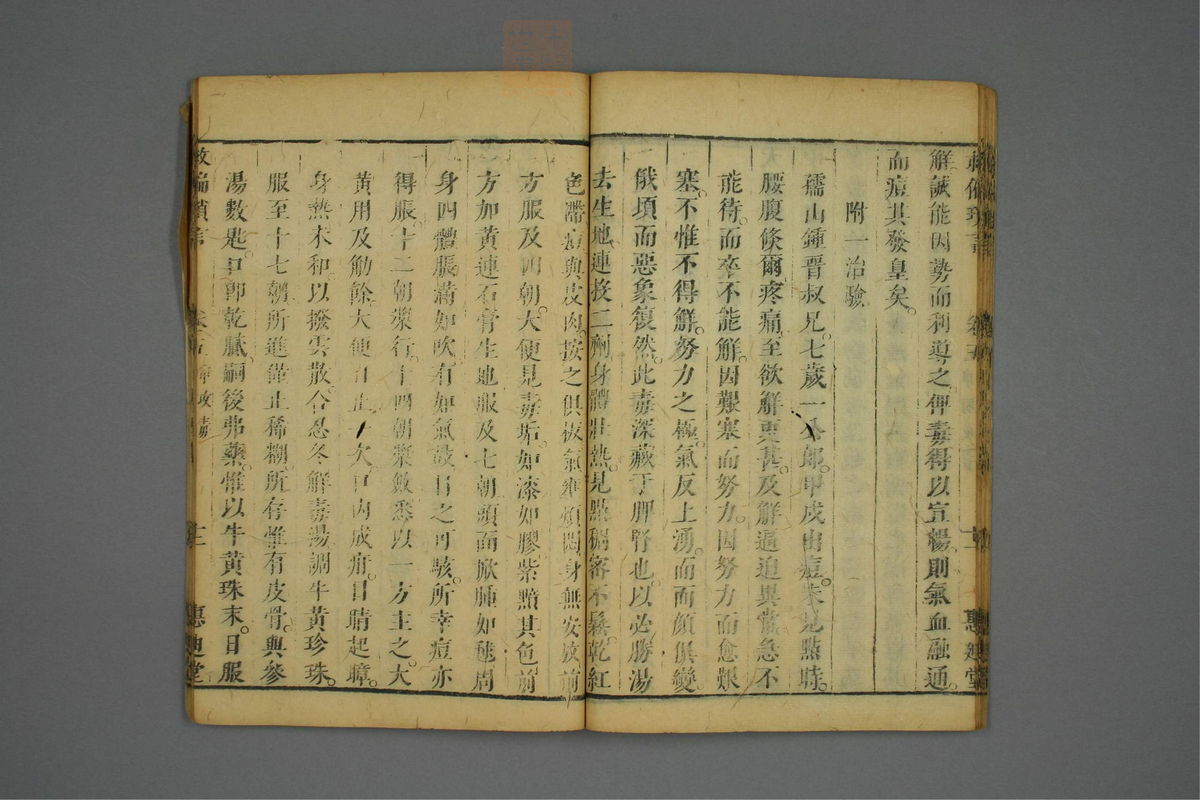 解誠能因勢而利導之俾毒得以宣暢則氣血融通。
而痘其發皇矣。
附一治驗
孺山鍾晉叔兄七歲一公郎甲戌出痘。未見點時
腰腹倏爾疼痛。至欲解更甚。及解逼迫異常。急不
能待。而卒不能解。因艱塞而努力。因努力而愈艱
塞。不惟不得解。努力之極。氣反上湧。而面顏俱變。
俄頃而惡象復然。此毒深藏于脾腎也。以必勝湯
去生地連投二劑身體壯熱。見點稠密不鬆。乾紅
色滯痘與皮肉。按之俱板氣煩悶身無安放前
方服及四朝。大便見毒垢。如漆如膠。紫黯其色前
方加黃連石膏生地服及七朝頭面腫如毬周
身四體脹滿如吹。有如氣鼓。目之可駭。所幸痘亦
得脹。十二朝漿行。十四朝漿斂悉以一方主之。大
黃用及觔餘。大便日止一次。口內成疳。目睛起障。
身熱未和以撥雲散合忍冬解毒湯調牛黃珍珠。
服至十七朝所進僅止稀糊所存惟有皮骨。與參
湯數匙。鼻即乾膩。嗣後弗藥。惟以牛黃珠末。日服
救偏瑣言
卷五
惠迪堂